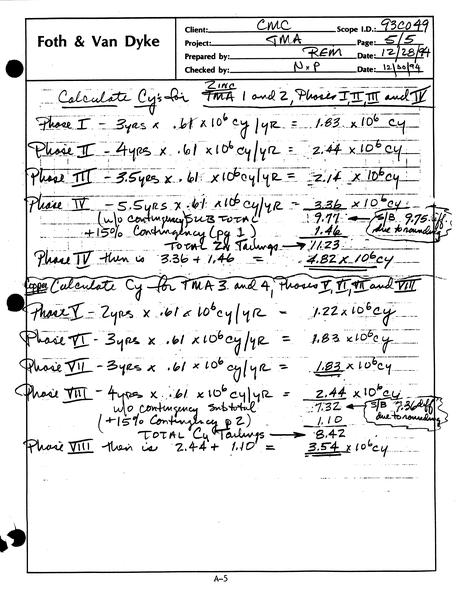 Foth & Van Dyke
Client: CMC Scope I.D.: 93C049
Project: TMA Page: 5/5
Prepared by: REM Date: 12/28/94
Checked by: NxP Date: 12/30/94
Zinc
Calculate Cy's for TMA 1 and 2, Phases I, II, III and IV
Phase I - 3yrs x .61 x10⁶ cy/yR = 1.83 x10⁶ cy
Phase II - 4yrs x .61 x10⁶ cy/yR = 2.44 x10⁶ cy
Phase III - 3.5yrs x .61 x10⁶ cy/yR = 2.14 x10⁶ cy
Phase IV - 5.5yrs x .61 x10⁶ cy/yR = 3.36 x10⁶ cy
(w/o contingency) SUBTOTAL 9.77 ← S/B 9.75 diff
+15% Contingency (pg 1) 1.46 due to rounding
TOTAL Zn Tailings → 11.23
Phase IV then is 3.36 + 1.46 = 4.82 x10⁶ cy
Copper Calculate Cy for TMA 3 and 4, Phases V, VI, VII and VIII
Phase V - 2yrs x .61 x10⁶ cy/yR = 1.22 x10⁶ cy
Phase VI - 3yrs x .61 x10⁶ cy/yR = 1.83 x10⁶ cy
Phase VII - 3yrs x .61 x10⁶ cy/yR = 1.83 x10⁶ cy
Phase VIII - 4yrs x .61 x10⁶ cy/yR = 2.44 x10⁶ cy
w/o contingency subtotal 7.32 ← S/B 7.36 diff
(+15% Contingency p 2) 1.10 due to rounding
TOTAL Cy Tailings → 8.42
Phase VIII then is 2.44 + 1.10 = 3.54 x10⁶ cy
A-5